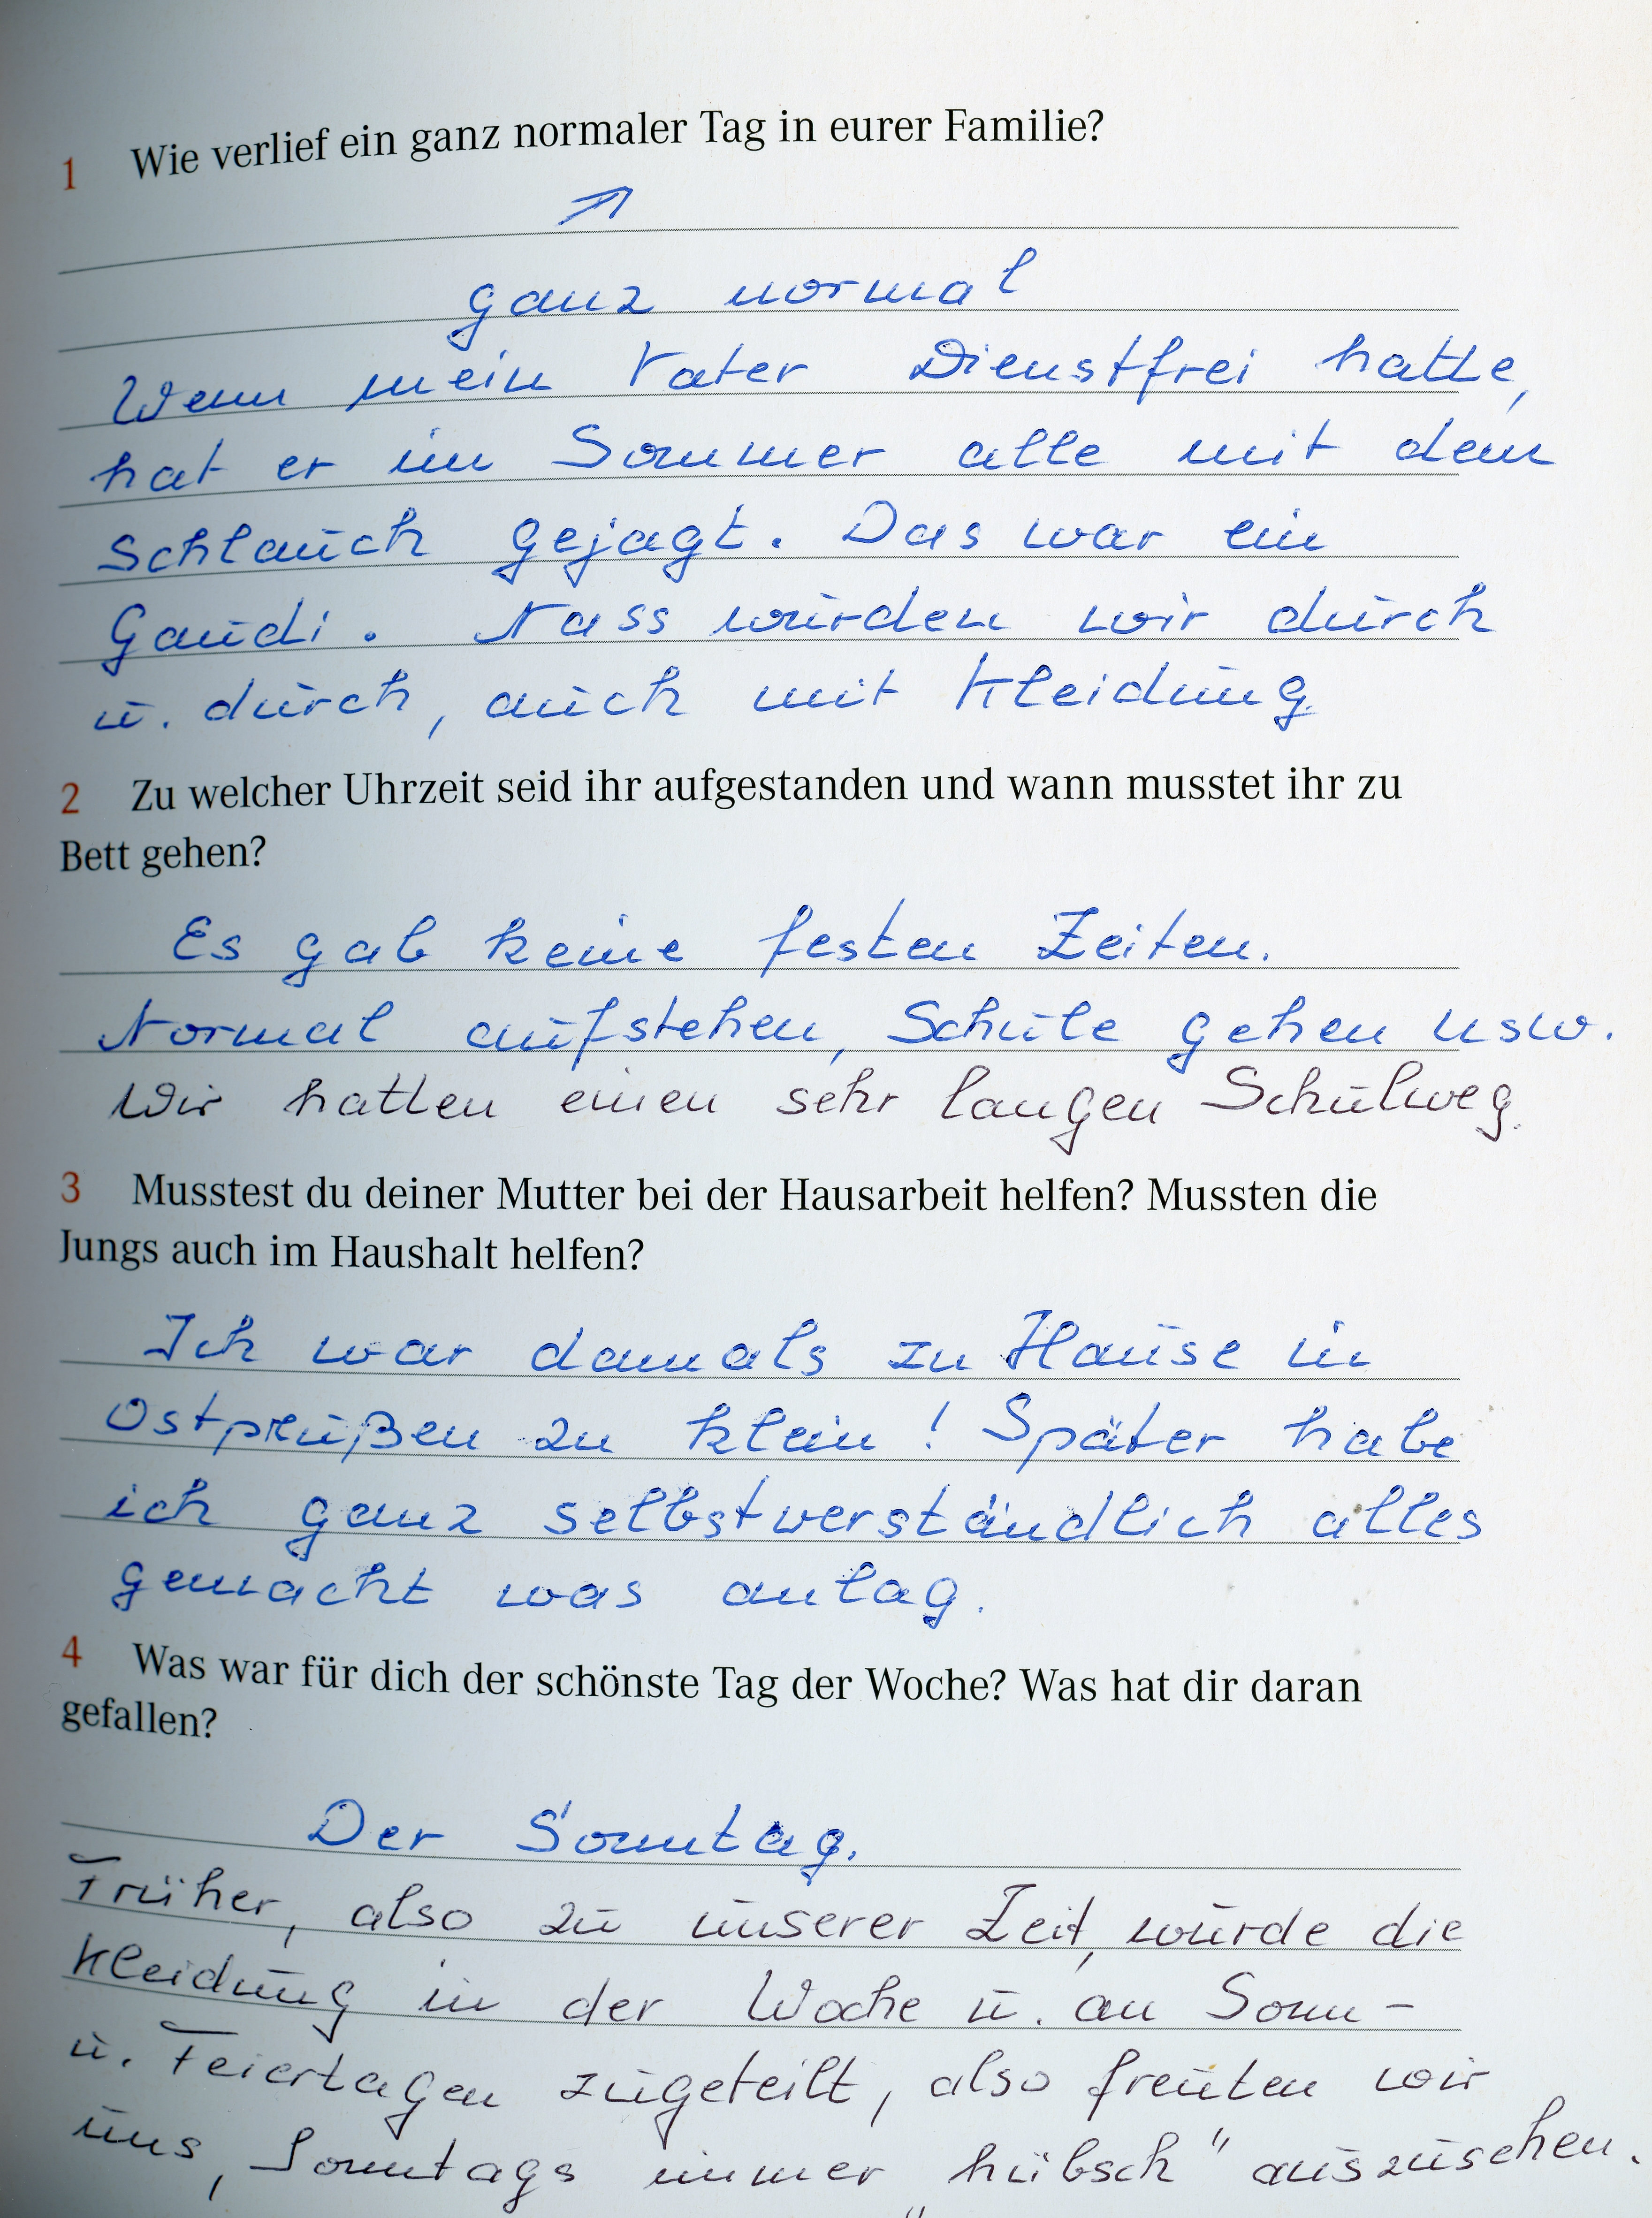 1 Wie verlief ein ganz normaler Tag in eurer Familie?
ganz normal
Wenn mein Vater Dienstfrei hatte,
hat er im Sommer alle mit dem
Schlauch gejagt. Das war ein
Gaudi. Nass wurden wir durch
u. durch, auch mit Kleidung.
2 Zu welcher Uhrzeit seid ihr aufgestanden und wann musstet ihr zu
Bett gehen?
Es gab keine festen Zeiten.
Normal aufstehen, Schule gehen usw.
Wir hatten einen sehr langen Schulweg.
3 Musstest du deiner Mutter bei der Hausarbeit helfen? Mussten die
Jungs auch im Haushalt helfen?
Ich war damals zu Hause in
Ostpreußen zu klein! Später habe
ich ganz selbstverständlich alles
gemacht was anlag.
4 Was war für dich der schönste Tag der Woche? Was hat dir daran
gefallen?
Der Sonntag.
Früher, also zu unserer Zeit, wurde die
Kleidung in der Woche u. an Sonn-
u. Feiertagen zugeteilt, also freuten wir
uns, Sonntags immer „hübsch" auszusehen.